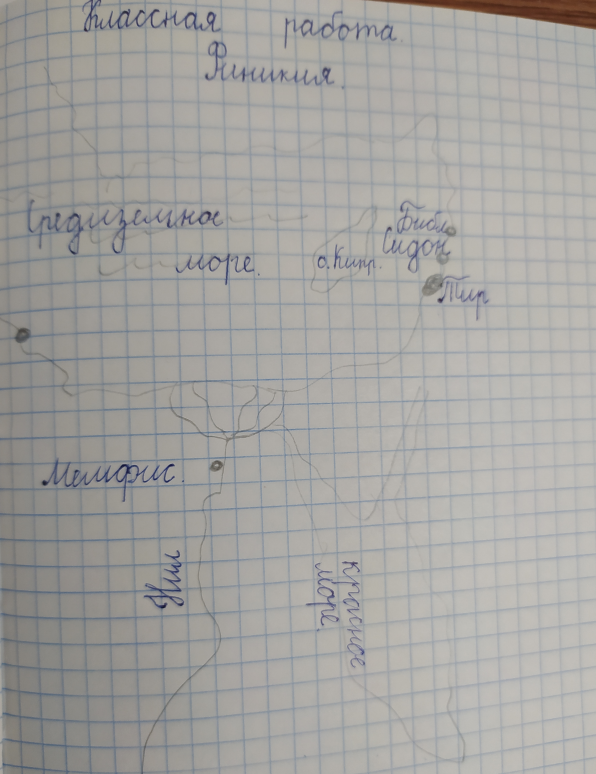 Классная работа.
Финикия.
Средиземное
море.
о. Кипр.
Библ
Сидон
Тир
Мемфис.
Нил
красное
море.